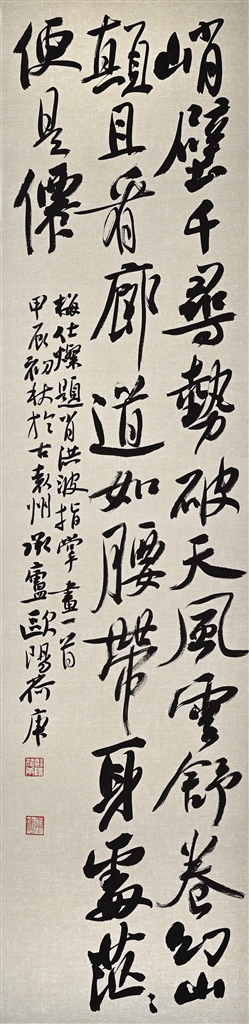 峭壁千尋勢破天風雲舒卷幻山
顛且看廊道如腰帶身處茫〻
便是僊
梅仕燦題肖洪波指掌畫一首
甲辰初秋於古袁州承廬歐陽荷庚